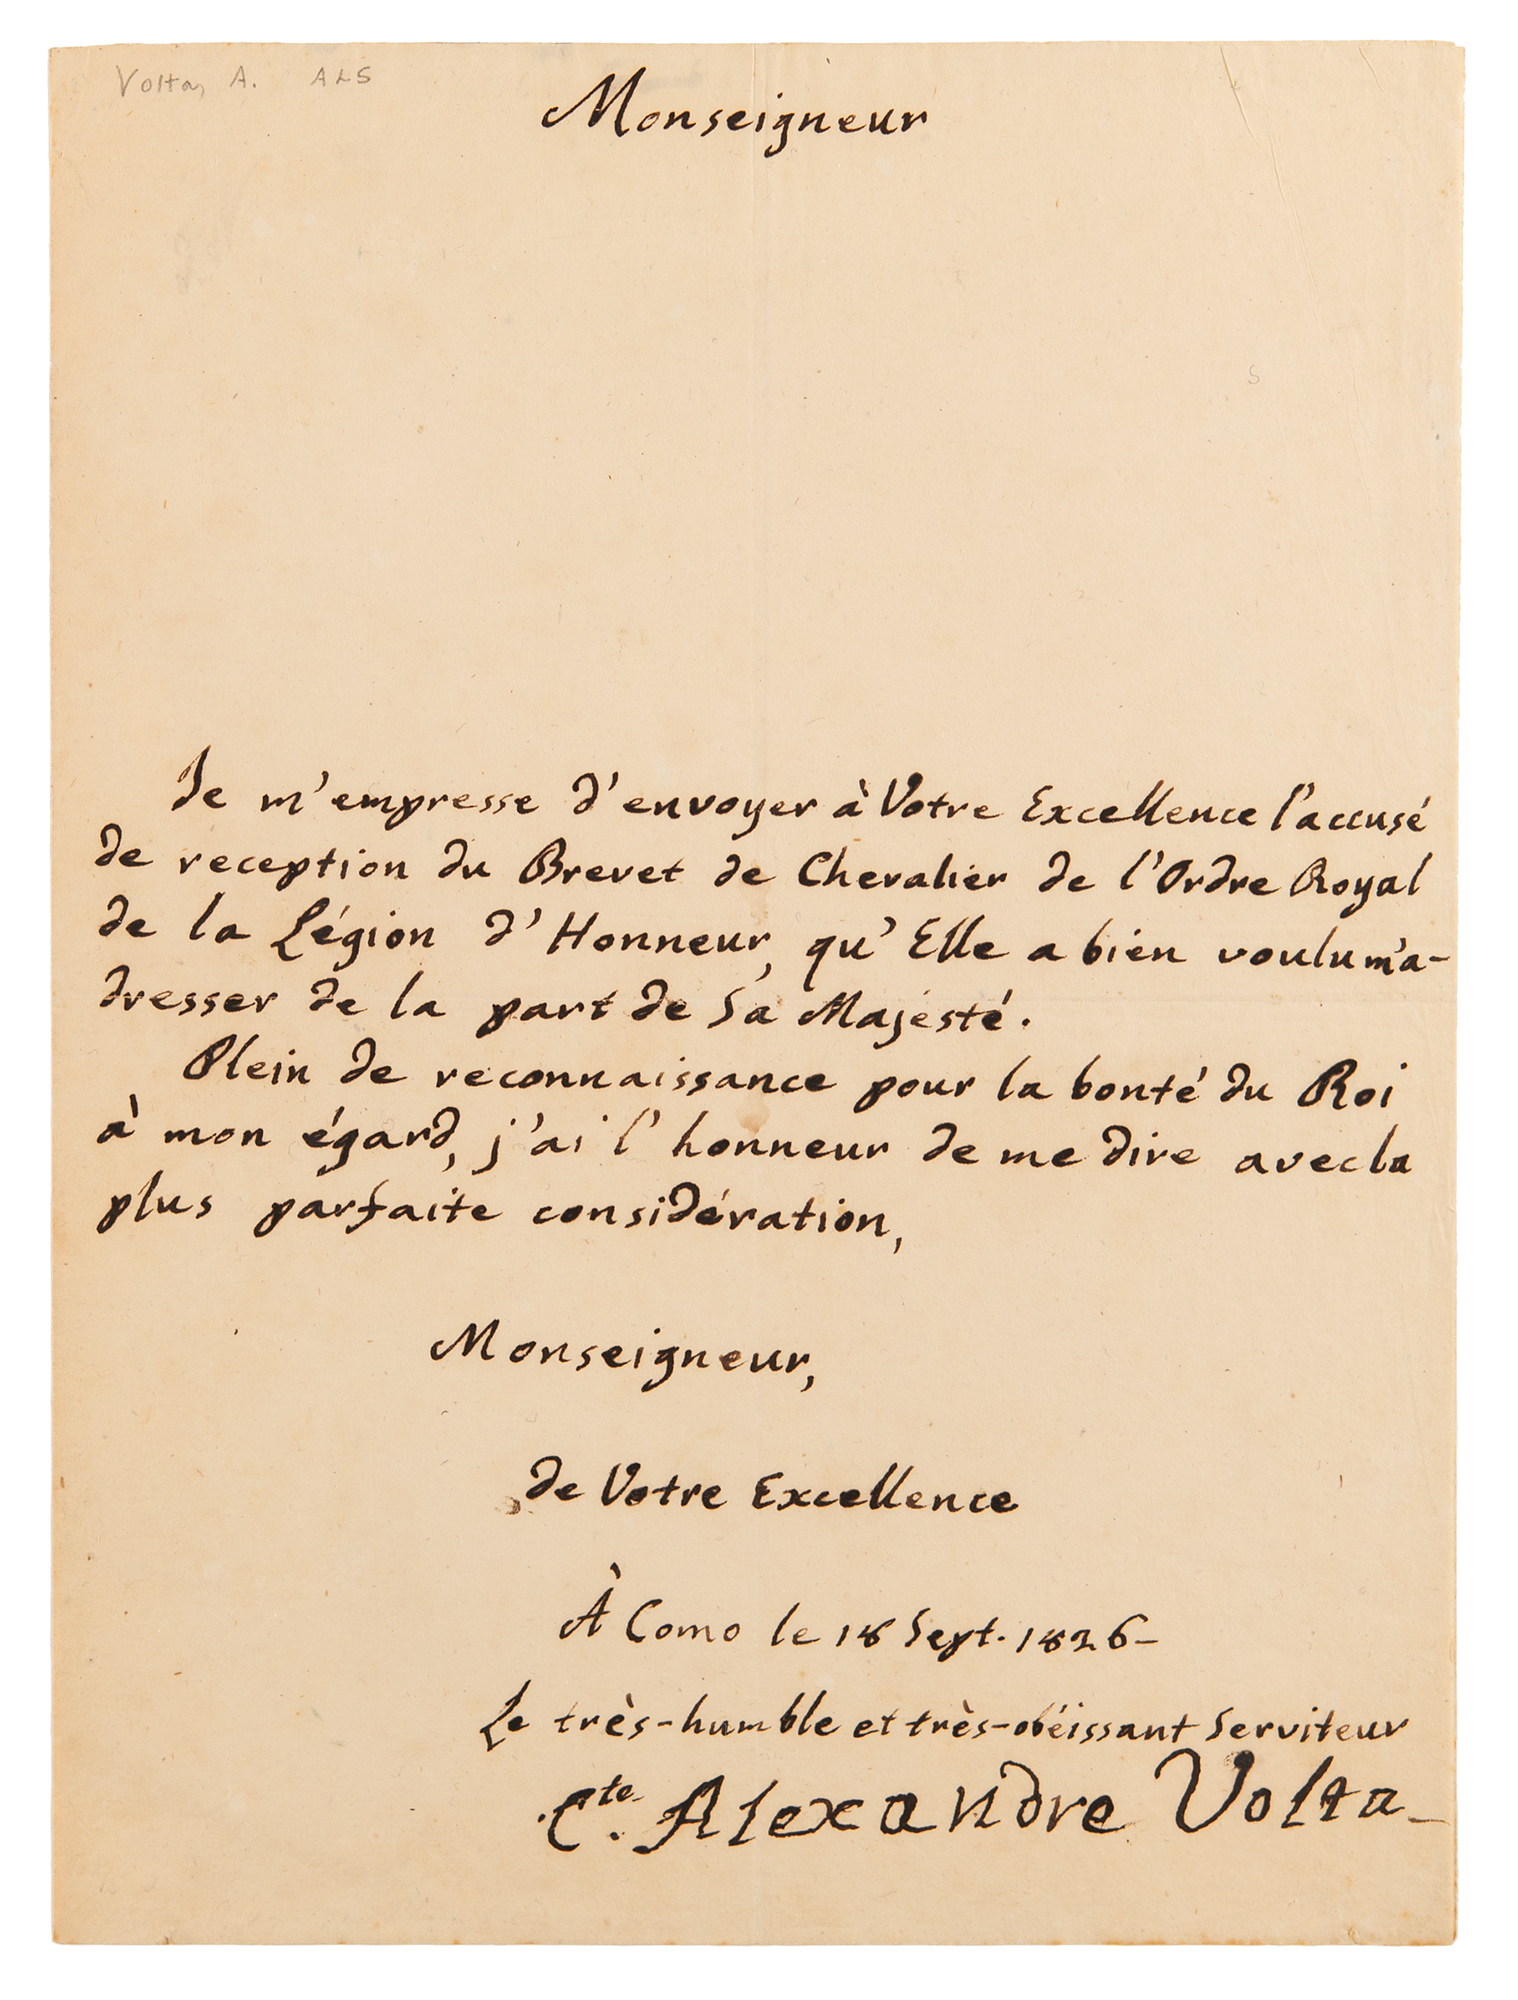 Volta, A. ALS
Monseigneur
Je m'empresse d'envoyer à Votre Excellence l'accusé
de reception du Brevet de Chevalier de l'Ordre Royal
de la Légion d'Honneur, qu'Elle a bien voulu m'a-
dresser de la part de Sa Majesté.
Plein de reconnaissance pour la bonté du Roi
à mon égard, j'ai l'honneur de me dire avec la
plus parfaite considération,
Monseigneur,
de Votre Excellence
À Como le 18 Sept. 1826-
Le très-humble et très-obéissant Serviteur
Cte. Alexandre Volta-